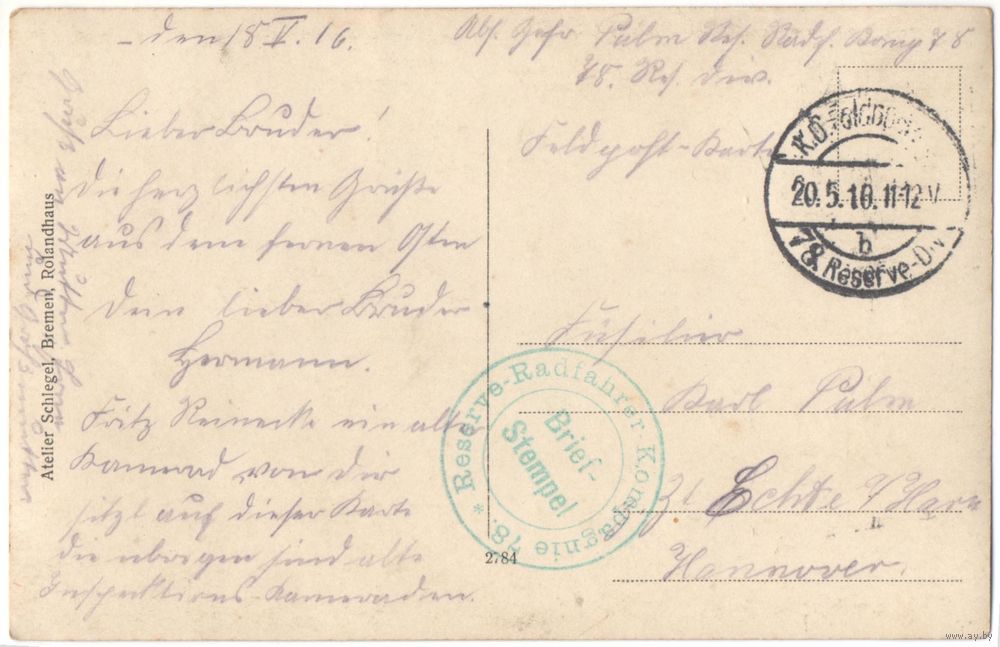 - den 18 V. 16.
Lieber Bruder!
Die herzlichsten Grüße
aus dem fernen Osten
Dein lieber Bruder
Hermann.
Fritz Reinecke ein alter
Kamerad von dir
sitzt auf dieser Karte
die übrigen sind alte
Inspektions-Kameraden.
Atelier Schlegel, Bremen, Rolandhaus
Abs. Gefr. Pülm Res. Radf. Komp 78
78. Res. Div.
Feldpost-Karte
K.D. Feldpost
20.5.16. 11-12 V
b
78. Reserve-Div.
Füsilier
Karl Pülm
Zt Echte a/Harz
Hannover.
* Reserve-Radfahrer-Kompagnie 78.
Brief-
Stempel
2784
www.ay.by